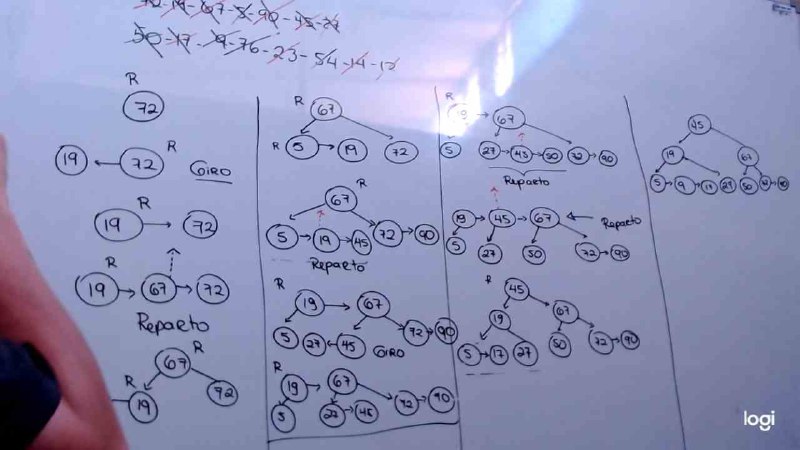 72-19-67-5-90-45-27
50-17-9-76-23-54-14-12
R
72
19 72 R GIRO
R
19 72
R
19 67 72
Reparto
67 R
R
19 72
R 67
R 5 19 72
R
67
5 19 45 72 90
Reparto
R
19 67
5 27 45 72 90
GIRO
R
19 67
5 27 45 72 90
R
67
5 27 45 50 72 90
Reparto
19 45 67 Reparto
5 27 50 72 90
R
45
19 67
5 17 27 50 72 90
45
19 67
5 9 17 27 50 90
logi